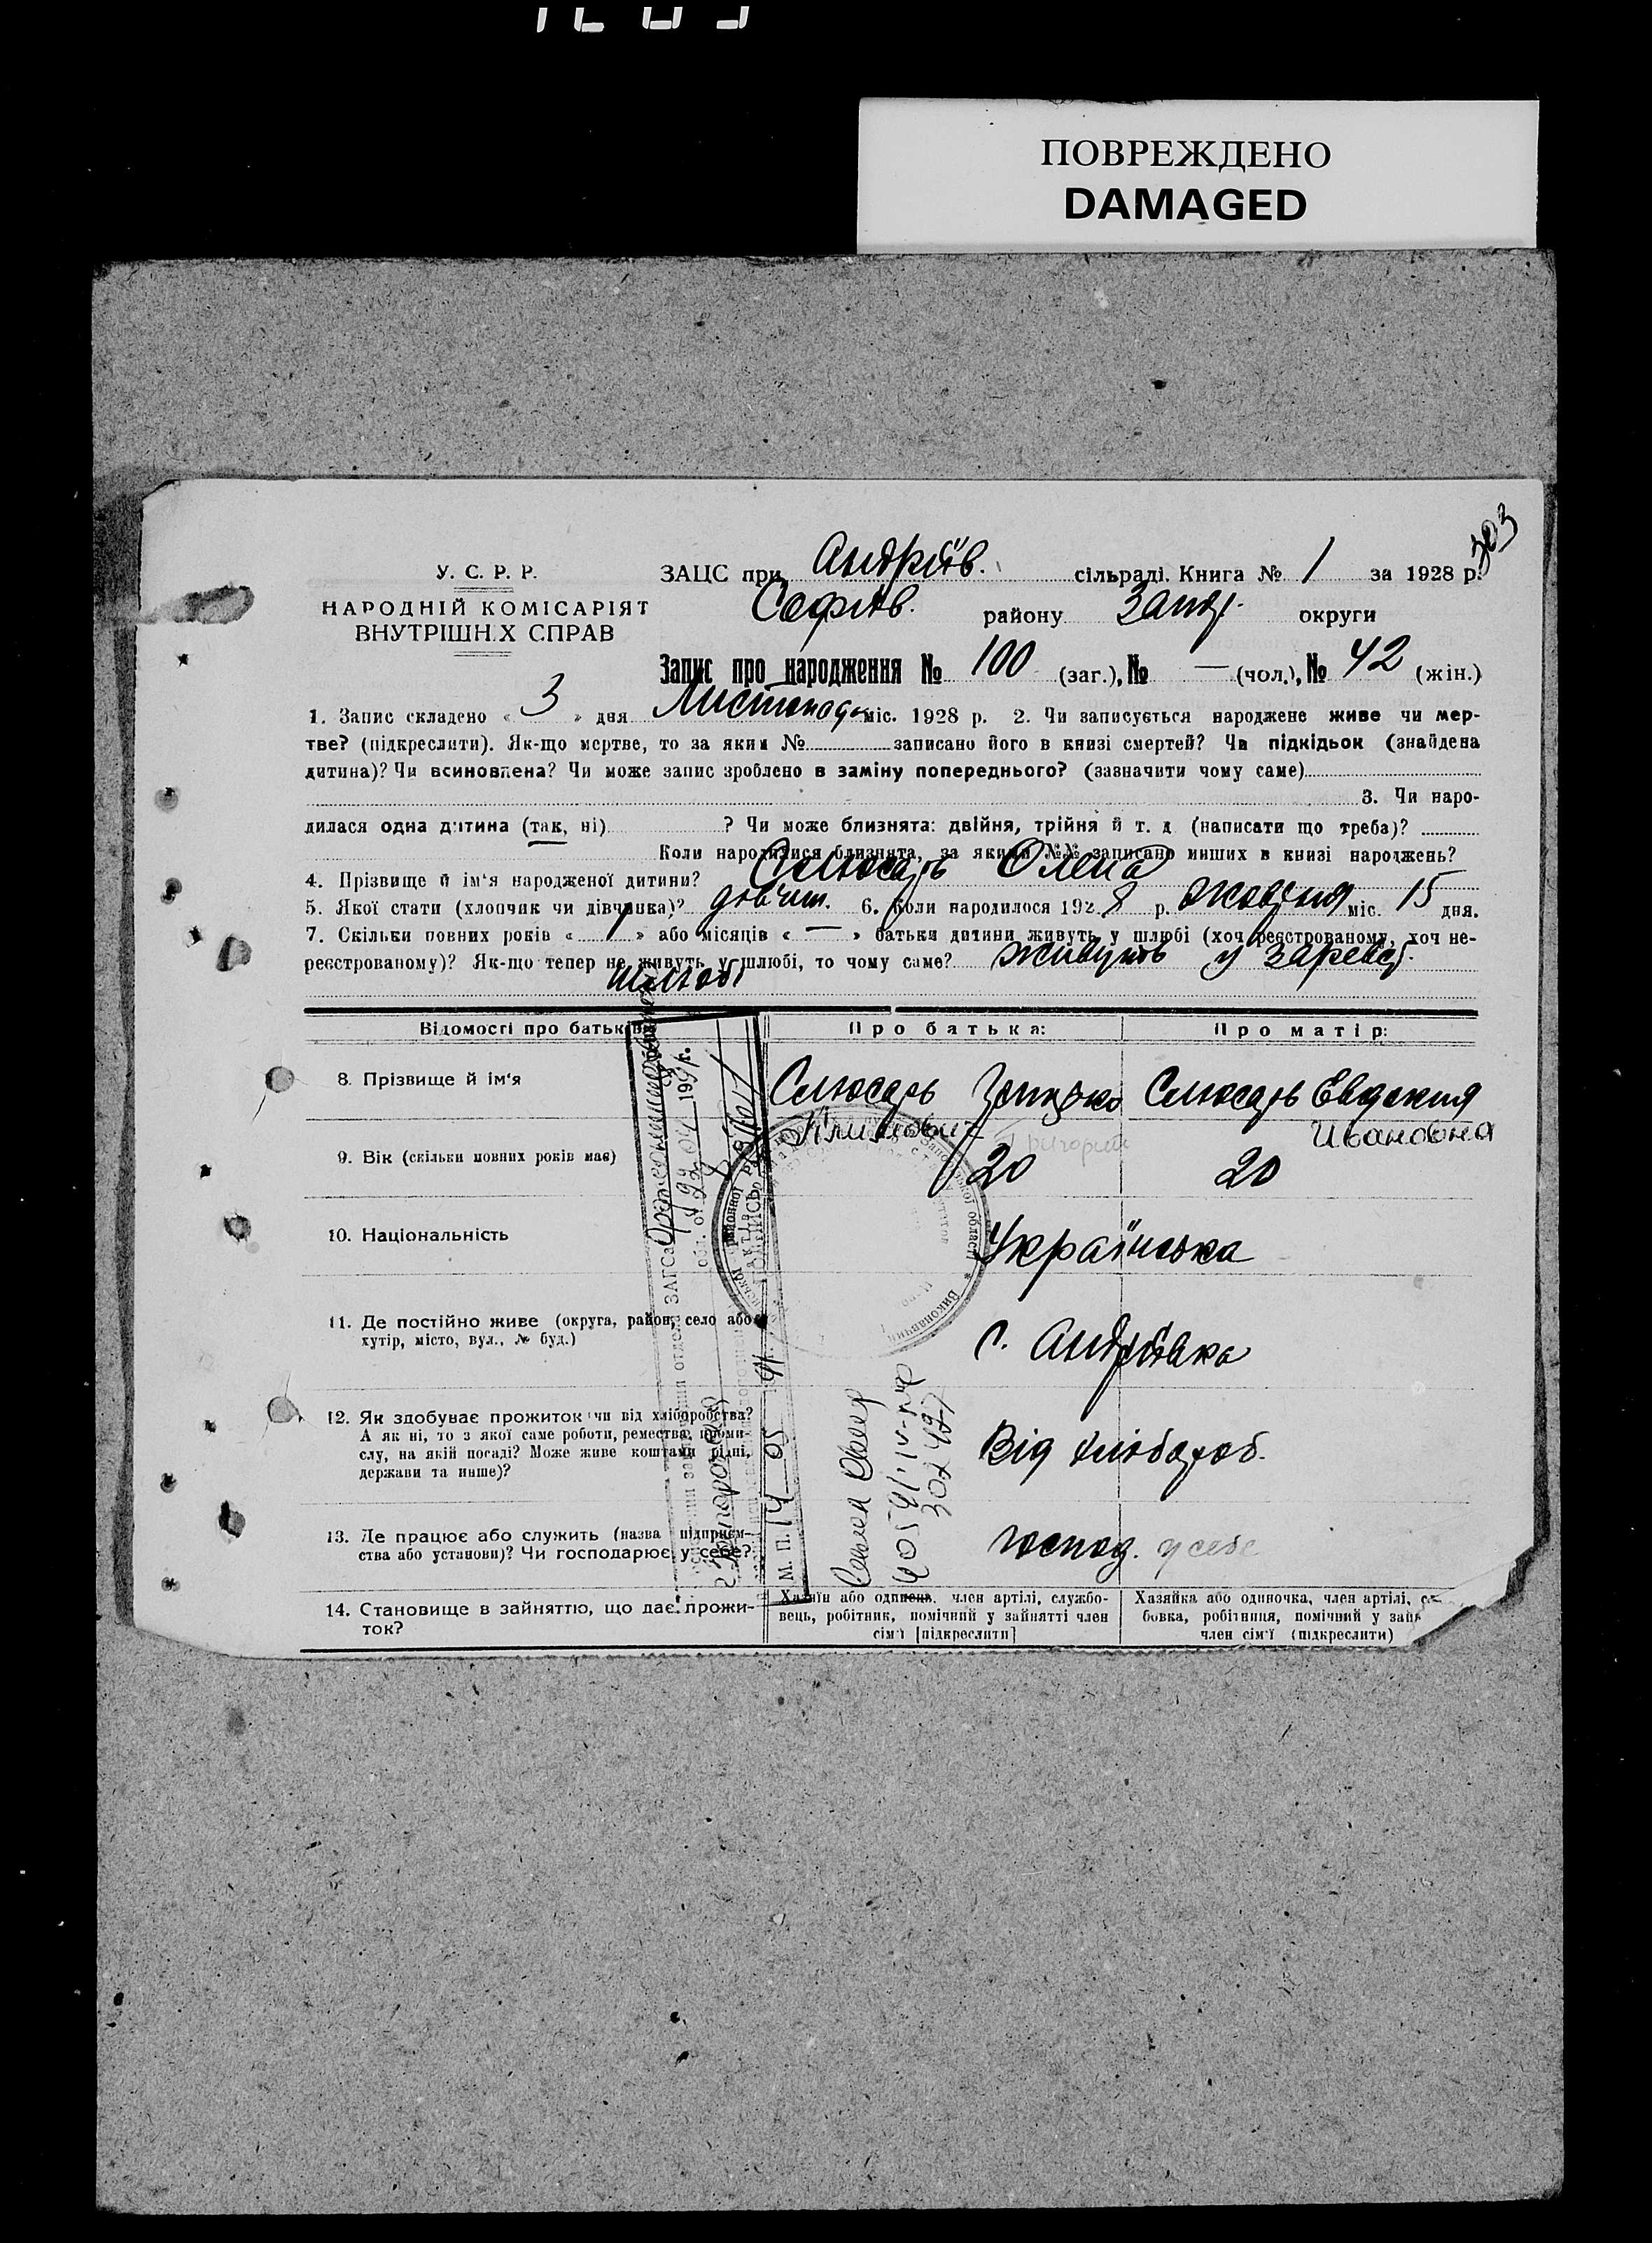 ПОВРЕЖДЕНО
DAMAGED
303
У. С. Р. Р.
НАРОДНІЙ КОМІСАРІЯТ
ВНУТРІШНІХ СПРАВ
ЗАЦС при Андріїв. сільраді. Книга № 1 за 1928 р.
Софіїв. району Запор. округи
Запис про народження № 100 (заг.), № — (чол.), № 42 (жін.)
1. Запис складено « 3 » дня Листопада міс. 1928 р. 2. Чи записується народжене живе чи мер-
тве? (підкреслити). Як-що мертве, то за яким № записано його в книзі смертей? Чи підкідьок (знайдена
дитина)? Чи всиновлена? Чи може запис зроблено в заміну попереднього? (зазначити чому саме)
3. Чи наро-
дилася одна дитина (так, ні) ? Чи може близнята: двійня, трійня й т. д. (написати що треба)?
Коли народилися близнята, за якими №№ записано инших в книзі народжень?
4. Прізвище й ім'я народженої дитини? Слюсарь Олена
5. Якої стати (хлопчик чи дівчинка)? дівчин. 6. Коли народилося 1928 р. жовтня міс. 15 дня.
7. Скільки повних років « 1 » або місяців « — » батьки дитини живуть у шлюбі (хоч реєстрованому, хоч не-
реєстрованому)? Як-що тепер не живуть у шлюбі, то чому саме? живуть у зареєс.
шлюбі
Відомості про батьків
Про батька:
Про матір:
8. Прізвище й ім'я
Слюсарь
Слюсарь Евдокия
Климович
Григорий
Ивановна
9. Вік (скільки повних років має)
20
20
10. Національність
Українська
11. Де постійно живе (округа, район, село або
хутір, місто, вул., № буд.)
с. Андріївка
12. Як здобуває прожиток чи від хліборобства?
А як ні, то з якої саме роботи, ремества, проми-
слу, на якій посаді? Може живе коштами рідні,
держави та инше)?
Від хлібороб.
13. Де працює або служить (назва підприєм-
ства або установи)? Чи господарює у себе?
господ. у себе
14. Становище в зайняттю, що дає прожи-
ток?
Хазяїн або одинець, член артілі, службо-
вець, робітник, помічний у зайнятті член
сім'ї [підкреслити]
Хазяйка або одиночка, член артілі,
бовка, робітниця, помічний у
член сім'ї (підкреслити)
М. П. 14 05 91